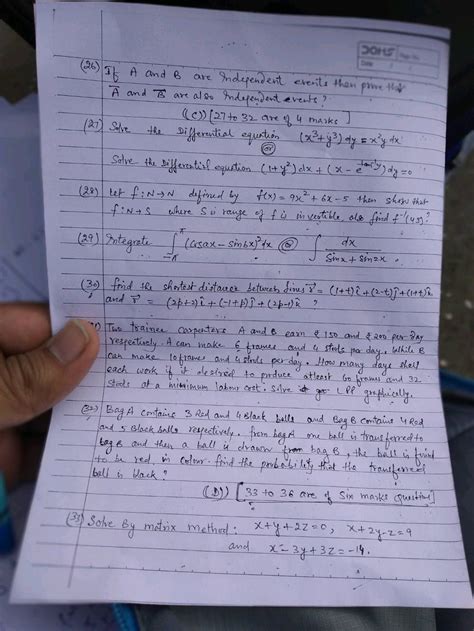 DOMS
Page No.
Date
(26) If A and B are independent events then prove that
A̅ and B̅ are also independent events?
((C)) [27 to 32 are of 4 marks]
(27) Solve the Differential equation (x³+y³)dy = x²y dx
(or)
Solve the Differential equation (1+y²)dx + (x - e^(tan⁻¹y))dy = 0
(28) Let f: N→N defined by f(x) = 9x² + 6x - 5 then show that
f: N→S where S is range of f is invertible, also find f⁻¹(45)?
(29) Integrate ∫_{-π}^{π} (cosax - sinbx)² dx (or) ∫ dx/(sinx + sin2x)
(30) find the shortest distance between lines r̄ = (1+t)î + (2-t)ĵ + (1+t)k̂
and r̄ = (2p+2)î + (-1+p)ĵ + (2p-1)k̂ ?
Two trainee carpenters A and B earn ₹ 150 and ₹ 200 per day
respectively. A can make 6 frames and 4 stools per day, while B
can make 10 frames and 4 stools per day. How many days shell
each work if it desired to produce atleast 60 frames and 32
stools at a minimum labour cost. Solve LPP graphically.
(32) Bag A contains 3 Red and 4 Black balls and Bag B contains 4 Red
and 5 Black balls respectively, from bag A one ball is transferred to
bag B and then a ball is drawn from bag B, the ball is found
to be red in colour. find the probability that the transferred
ball is black?
((D)) [33 to 36 are of six marks question]
Solve By matrix method: x+y+2z=0, x+2y-z=9
and x-3y+3z=-14.